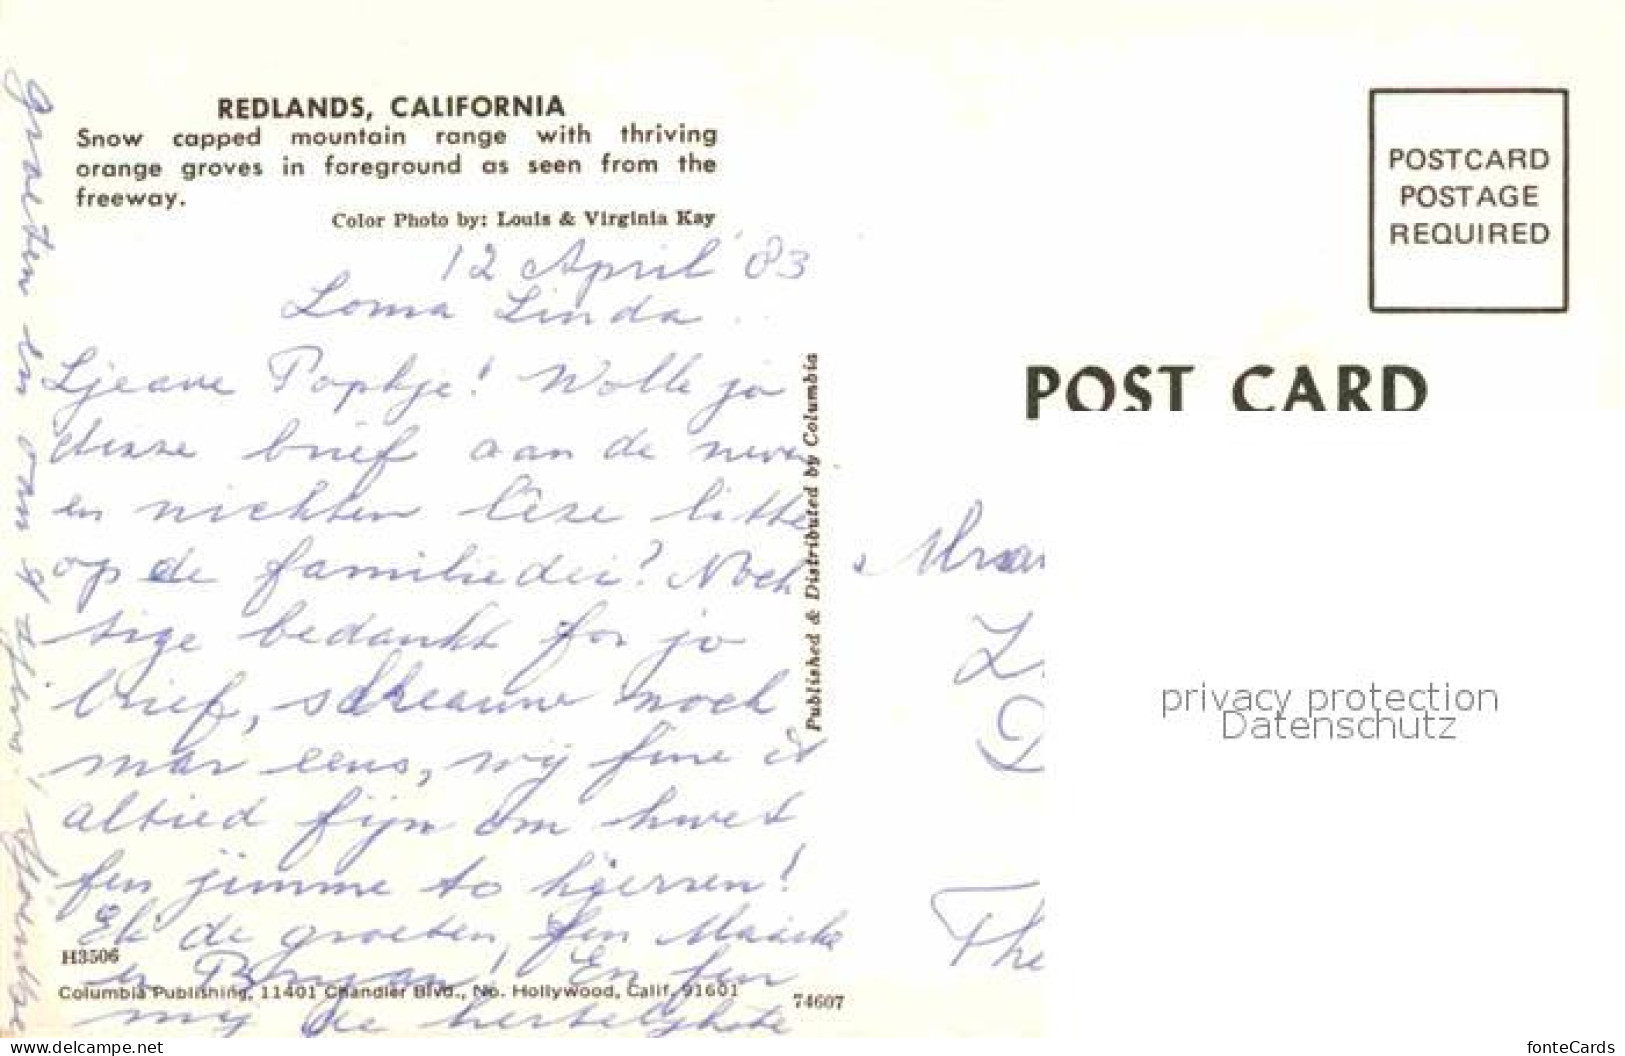 REDLANDS, CALIFORNIA
Snow capped mountain range with thriving
orange groves in foreground as seen from the
freeway.
Color Photo by: Louis & Virginia Kay
12 April '83
Loma Linda
Ljeave Popkje! Wolle jo
disse brief aan de neven
en nichten lêze litte
op de familiedei? Noch
tige bedankt for jo
brief, skreauw noch
mar eens, wy fine it
altied fijn om hwet
fen jimme to hjerren!
Ek de groeten, fen Maaike
en Bryan! En fen
my de hertelykste
groeten en om
H3506
Columbia Publishing, 11401 Chandler Blvd., No. Hollywood, Calif. 91601
74607
Published & Distributed by Columbia
POSTCARD
POSTAGE
REQUIRED
POST CARD
The
privacy protection
Datenschutz
www.delcampe.net
fonteCards